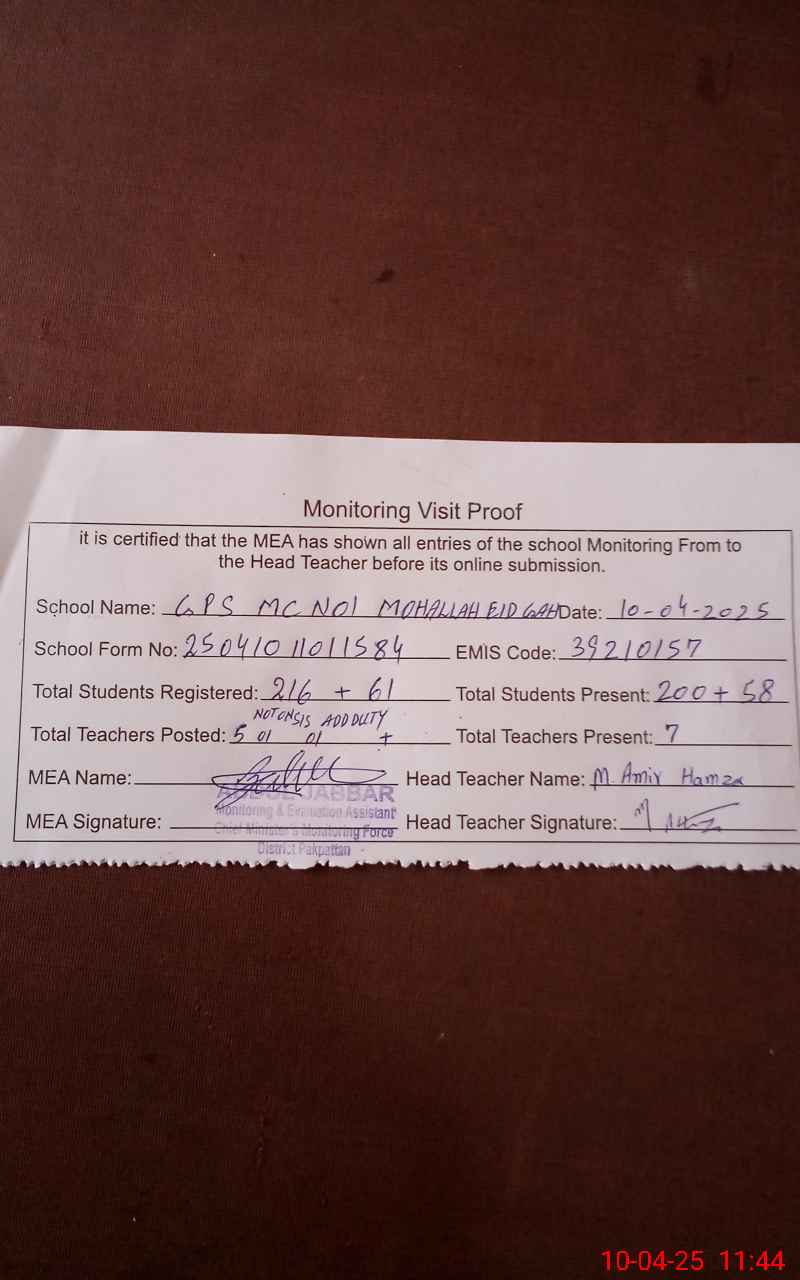 Monitoring Visit Proof
it is certified that the MEA has shown all entries of the school Monitoring From to
the Head Teacher before its online submission.
School Name: GPS MC NO1 MOHALLAH EID GAH Date: 10-04-2025
School Form No: 25041011011584 EMIS Code: 39210157
Total Students Registered: 216 + 61 Total Students Present: 200 + 58
NOT ON SIS ADD DUTY
Total Teachers Posted: 5 01 01 + Total Teachers Present: 7
MEA Name: Head Teacher Name: M. Amir Hamza
JABBAR
Monitoring & Evaluation Assistant
MEA Signature: Head Teacher Signature:
Chief Minister's Monitoring Force
District Pakpattan
10-04-25 11:44